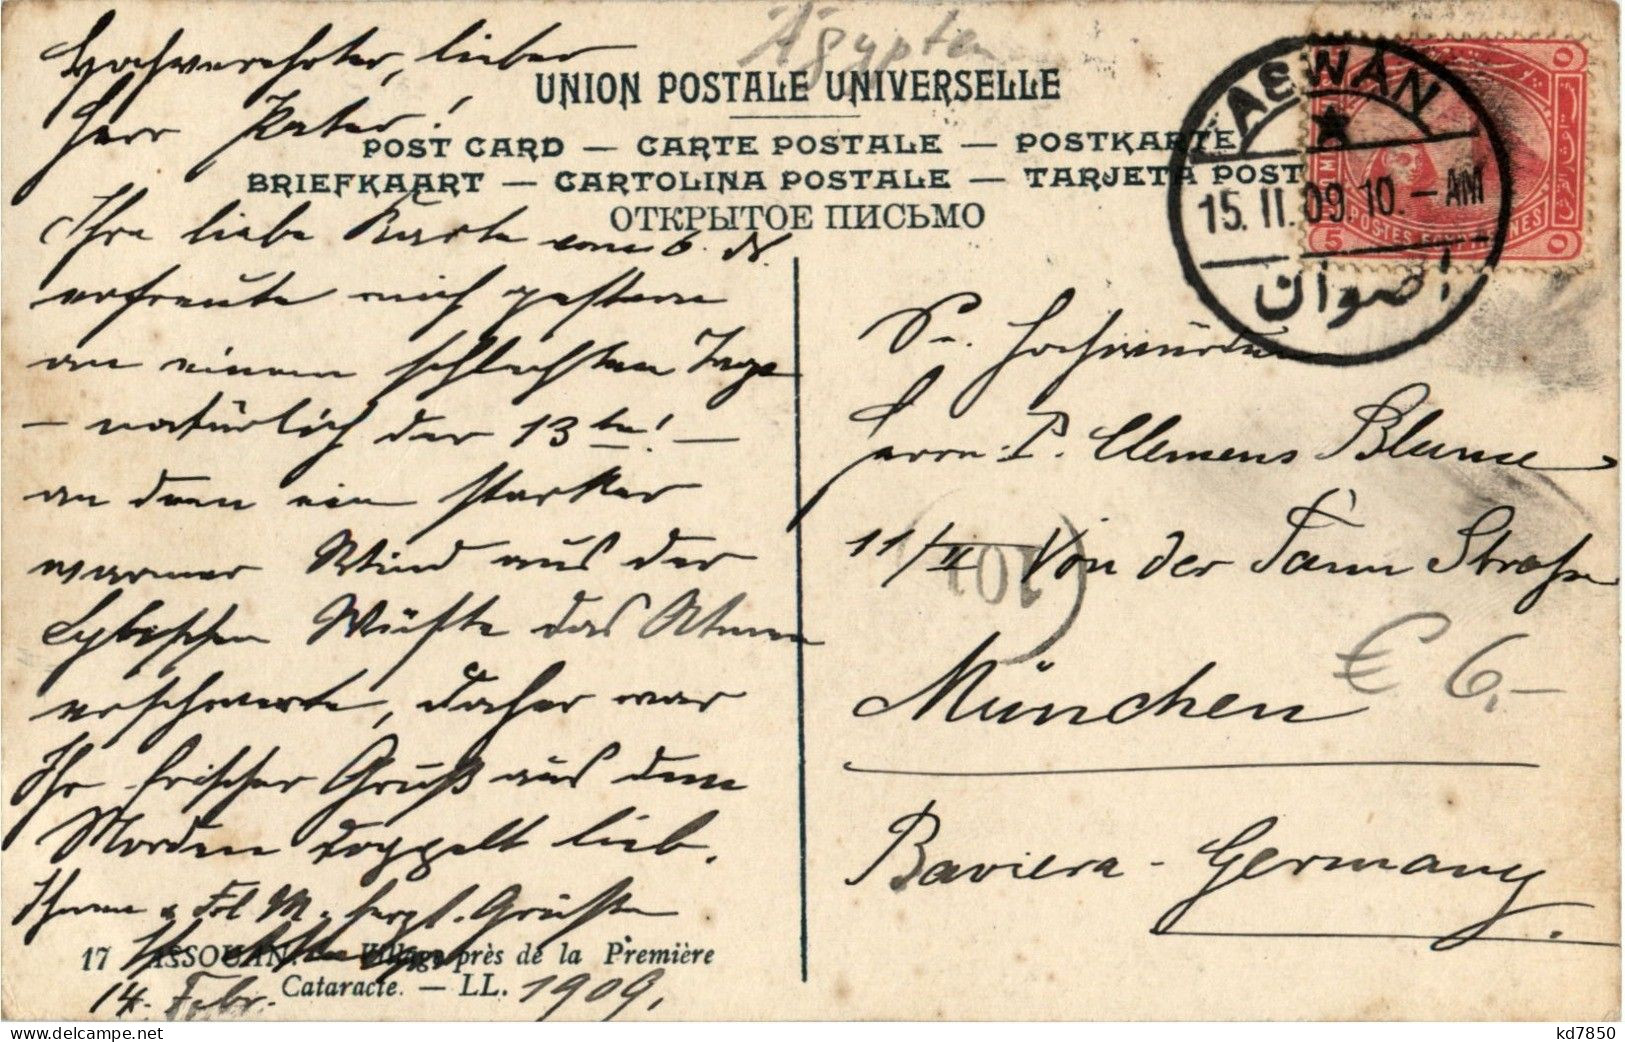 Ägypten
UNION POSTALE UNIVERSELLE
POST CARD — CARTE POSTALE — POSTKARTE
BRIEFKAART — CARTOLINA POSTALE — TARJETA POST
ОТКРЫТОЕ ПИСЬМО
ASWAN
15. II. 09. 10. - AM
اصوان
5
POSTES
Hochverehrter, lieber
Herr Pater!
Ihre liebe Karte vom 6. ds.
erfreute mich gestern
an einem schlechten Tage
– natürlich der 13te! –
an dem ein starker
warmer Wind aus der
Lybischen Wüste das Atmen
erschwerte, daher war
Ihr frischer Gruß aus dem
Norden doppelt lieb.
Ihnen & Frl M. herzl. Grüße
17 ASSOUAN. Village près de la Première
Cataracte. — LL.
14. Febr. 1909.
Sr. Hochwürden
Herrn P. Clemens Blume
11/II Von der Tann Straße
München
Baviera - Germany.
101
€ 6,-
kd7850